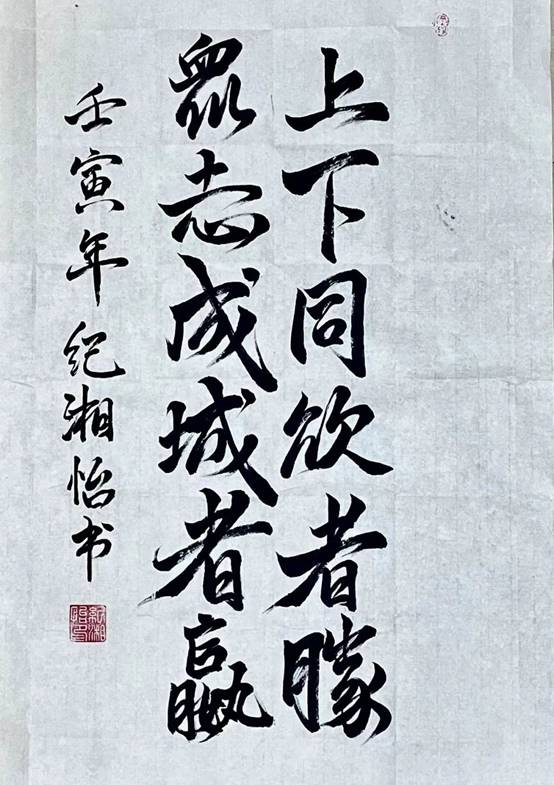 上下同欲者勝
眾志成城者贏
壬寅年 纪湘怡书